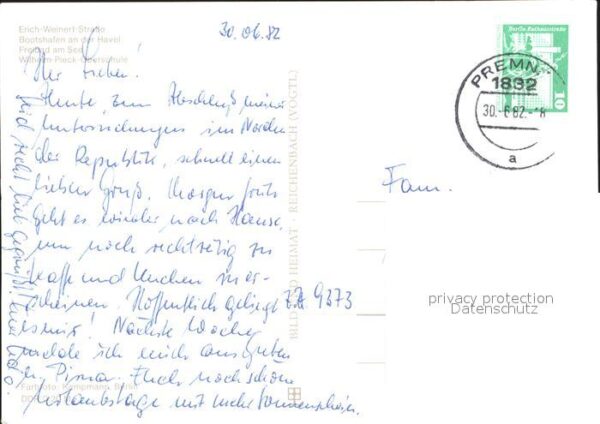 Erich-Weinert-Straße
Bootshafen an der Havel
Freibad am See
Wilhelm-Pieck-Oberschule
30.06.82
Ihr Lieben!
Heute, zum Abschluß meiner
Untersuchungen im Norden
der Republik, schnell einen
lieben Gruß. Morgen früh
geht es wieder nach Hause,
um noch rechtzeitig zu
Kaffe und Kuchen zu er-
scheinen. Hoffentlich gelingt
es mir! Nächste Woche
melde ich mich aus
Pirna. Euch noch schöne
Urlaubstage mit mehr Sonnenschein.
Seid recht lieb gegrüßt
Farbfoto: Kempmann, Berlin
BILD UND HEIMAT · REICHENBACH (VOGTL)
9373
Berlin, Rathausstraße
DDR
10
PREMN
1832
30.-6.82.-8
a
Fam.
privacy protection
Datenschutz